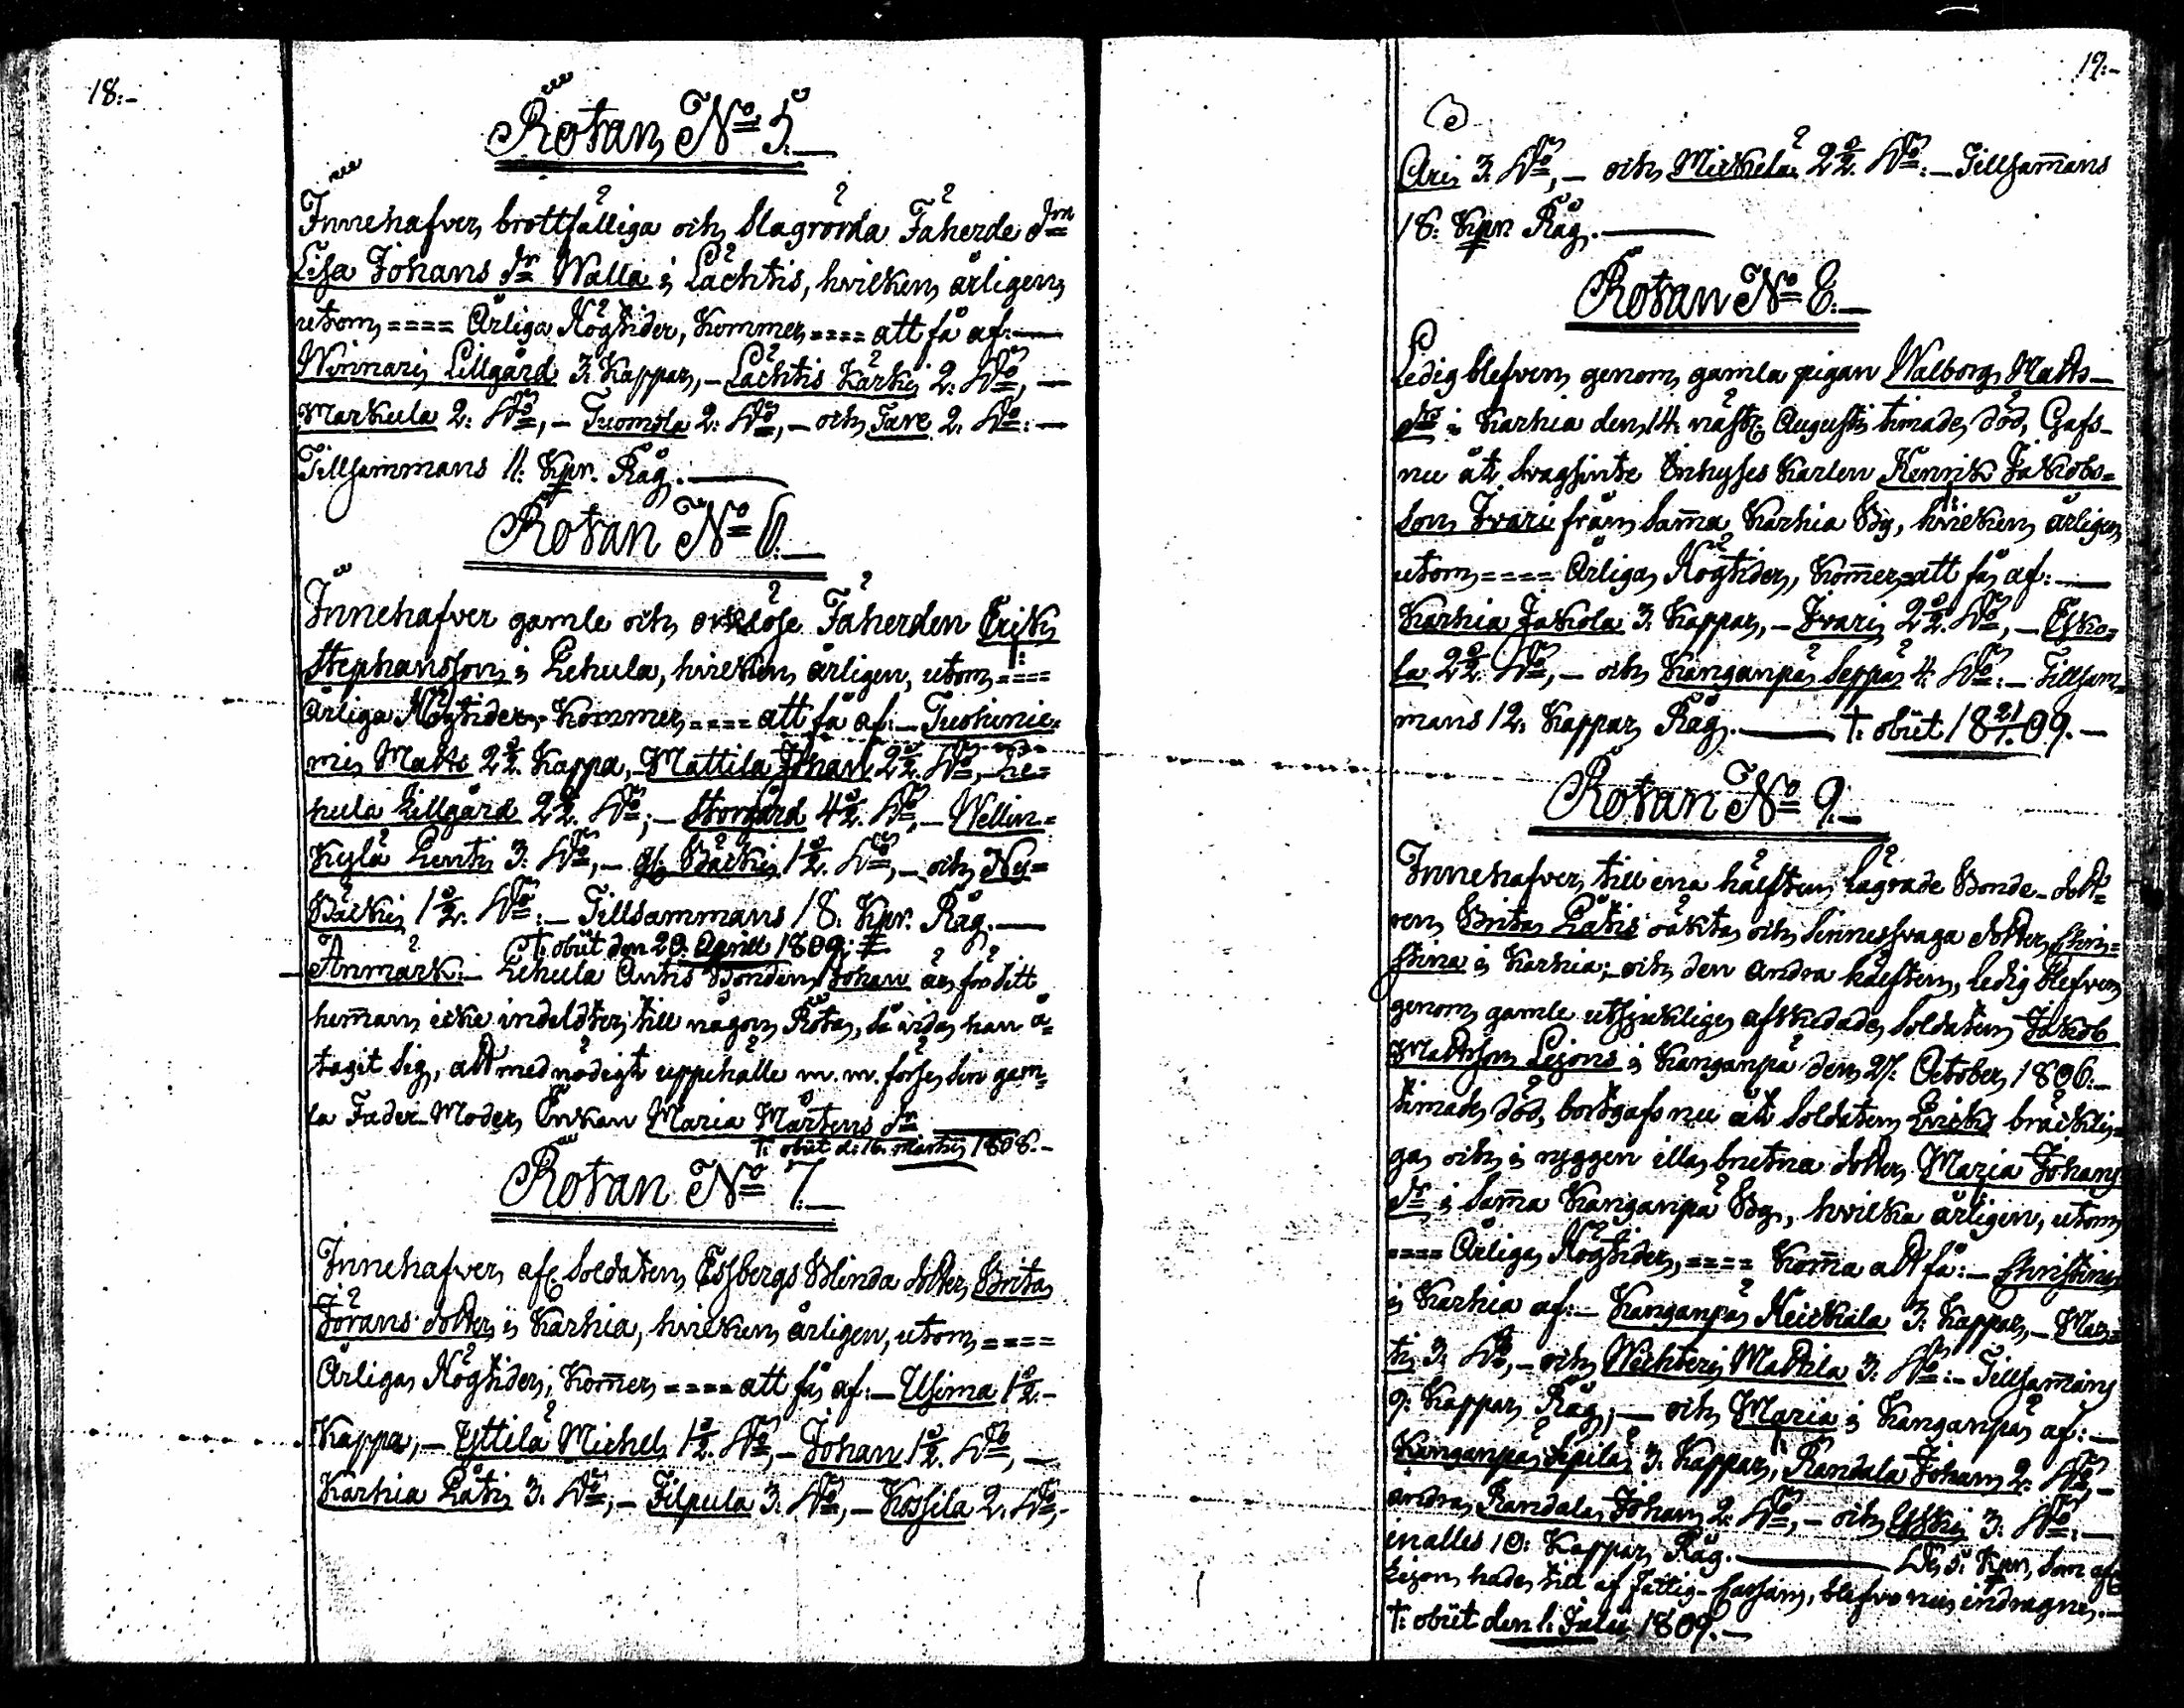 18:-
Rotan, No 5.
Innehafver, brottfälliga och slagrörda Fäherde drn
Lisa Johans dr Walla i Lachtis, hvilken, årligen,
utom, ==== Årliga Högtider, Kommer, ==== att få af: —
Winnari, Lillgård 3. Kappar, — Lachtis Kärki 2. Do, —
Markula 2. Do, — Tuomola 2. Do, — och, Tare 2. Do: —
Tillsammans 11: Kpr. Råg. —
Rotan No 6. —
Innehafver gamle och, orklöse Fäherden Erik,
Stephansson, i Lehula, hvilken, årligen, utom, ====
Årliga Högtider, Kommer, ==== att få af: — Tuohinie-
mi, Matts 2 1/2. Kappa, — Mattila Johan 2 1/2. Do, — Le-
hula Lillgård 2 1/2. Do; — Storgård 4 1/2. Do, — Wellin-
kylä Lentis 3: Do, — gl. Bäcki, 1 1/2. Do, — och, Ny-
Bäcki, 1 1/2. Do: — Tillsammans 18: Kpr. Råg. —
T: obiit den 20. April 1809.
Anmärk: — Lehula Antis Bonden, Johan är, för sitt
heman, icke indeldter, till någon, Rota, så vida, han å-
tagit sig, att med nödigt uppehälle m. m. förse, sin gam-
la Fader-Moder, Enkan Maria Mårtens dr —
T: obiit d. 16. Martij 1808. —
Rotan No 7. —
Innehafver, afl. Soldaten, Essbergs Blinda dotter, Brita,
Jörans dotter, i Karhia, hvilken, årligen, utom, ====
Årliga, Högtider, Kommer, ==== att få, af: — Usima 1 1/2. —
Kappa, — Yttilä Michel, 1 1/2. Do, — Johan 1 1/2. Do, —
Karhia Lätis 3. Do, — Filpula 3. Do, — Kossila 2. Do, —
19:-
Ari 3. Do, — och, Mickela, 2 1/2. Do: — Tillsammans
18: Kpr. Råg. —
Rotan No 8. —
Ledig blefven, genom, gamla pigan Walborg, Matts —
dr i Karhia den, 14. näst. Augusti, timade, död, Gafs —
nu åt svagsinte Inhyses Karlen Henrik Jakobs-
son, Ivari från, samma Karhia By, hvilken, årligen,
utom, ==== Årliga, Högtider, Kommer = att få, af: —
Karhia Jakola 3. Kappar, — Ivari, 2 1/2. Do, — Esko-
la 2 1/2. Do, — och Kanganpä, Seppä 4. Do: — Tillsam-
mans 12. Kappar, Råg. — T: obiit 18 21/1. 09. —
Rotan No 9. —
Innehafver, till ena hälften, lagråde Bonde-dott-
ren, Brita, Lätis oäkta, och sinnessvaga dotter, Chri-
stina i Karhia; — och, den andra hälften, ledig blefven
genom, gamle utfattige, afskedade, Soldaten, Jakob
Mattsson, Lejons i Kanganpä den, 27. October, 1806. —
timade, död, bortgafs nu åt soldaten, Ericks bräckli-
ga, och, i ryggen illa, brutna dotter Maria Johans
dr i samma Kanganpä By, hvilka årligen, utom
==== Årliga, Högtider, ==== Komma att få: — Christina
i Karhia af: — Kanganpä, Heickala 3. Kappar, — Mar-
ti, 3. Do, — och, Wichteri, Mattila 3. Do: — Tillsammans
9: Kappar, Råg; — och Maria i Kanganpä, af: —
Kanganpä, Sipilä, 3. Kappar, Randala Johan, 2. Do, —
andra, Randala, Johan, 2. Do, — och Yski, 3: Do: —
inalles 10: Kappar, Råg. — De 5: Kpr, som afl.
Lejon, hade, till af Fattig-Cassan, blefvo nu, indragne. —
T: obiit den 1. Julii 1809. —